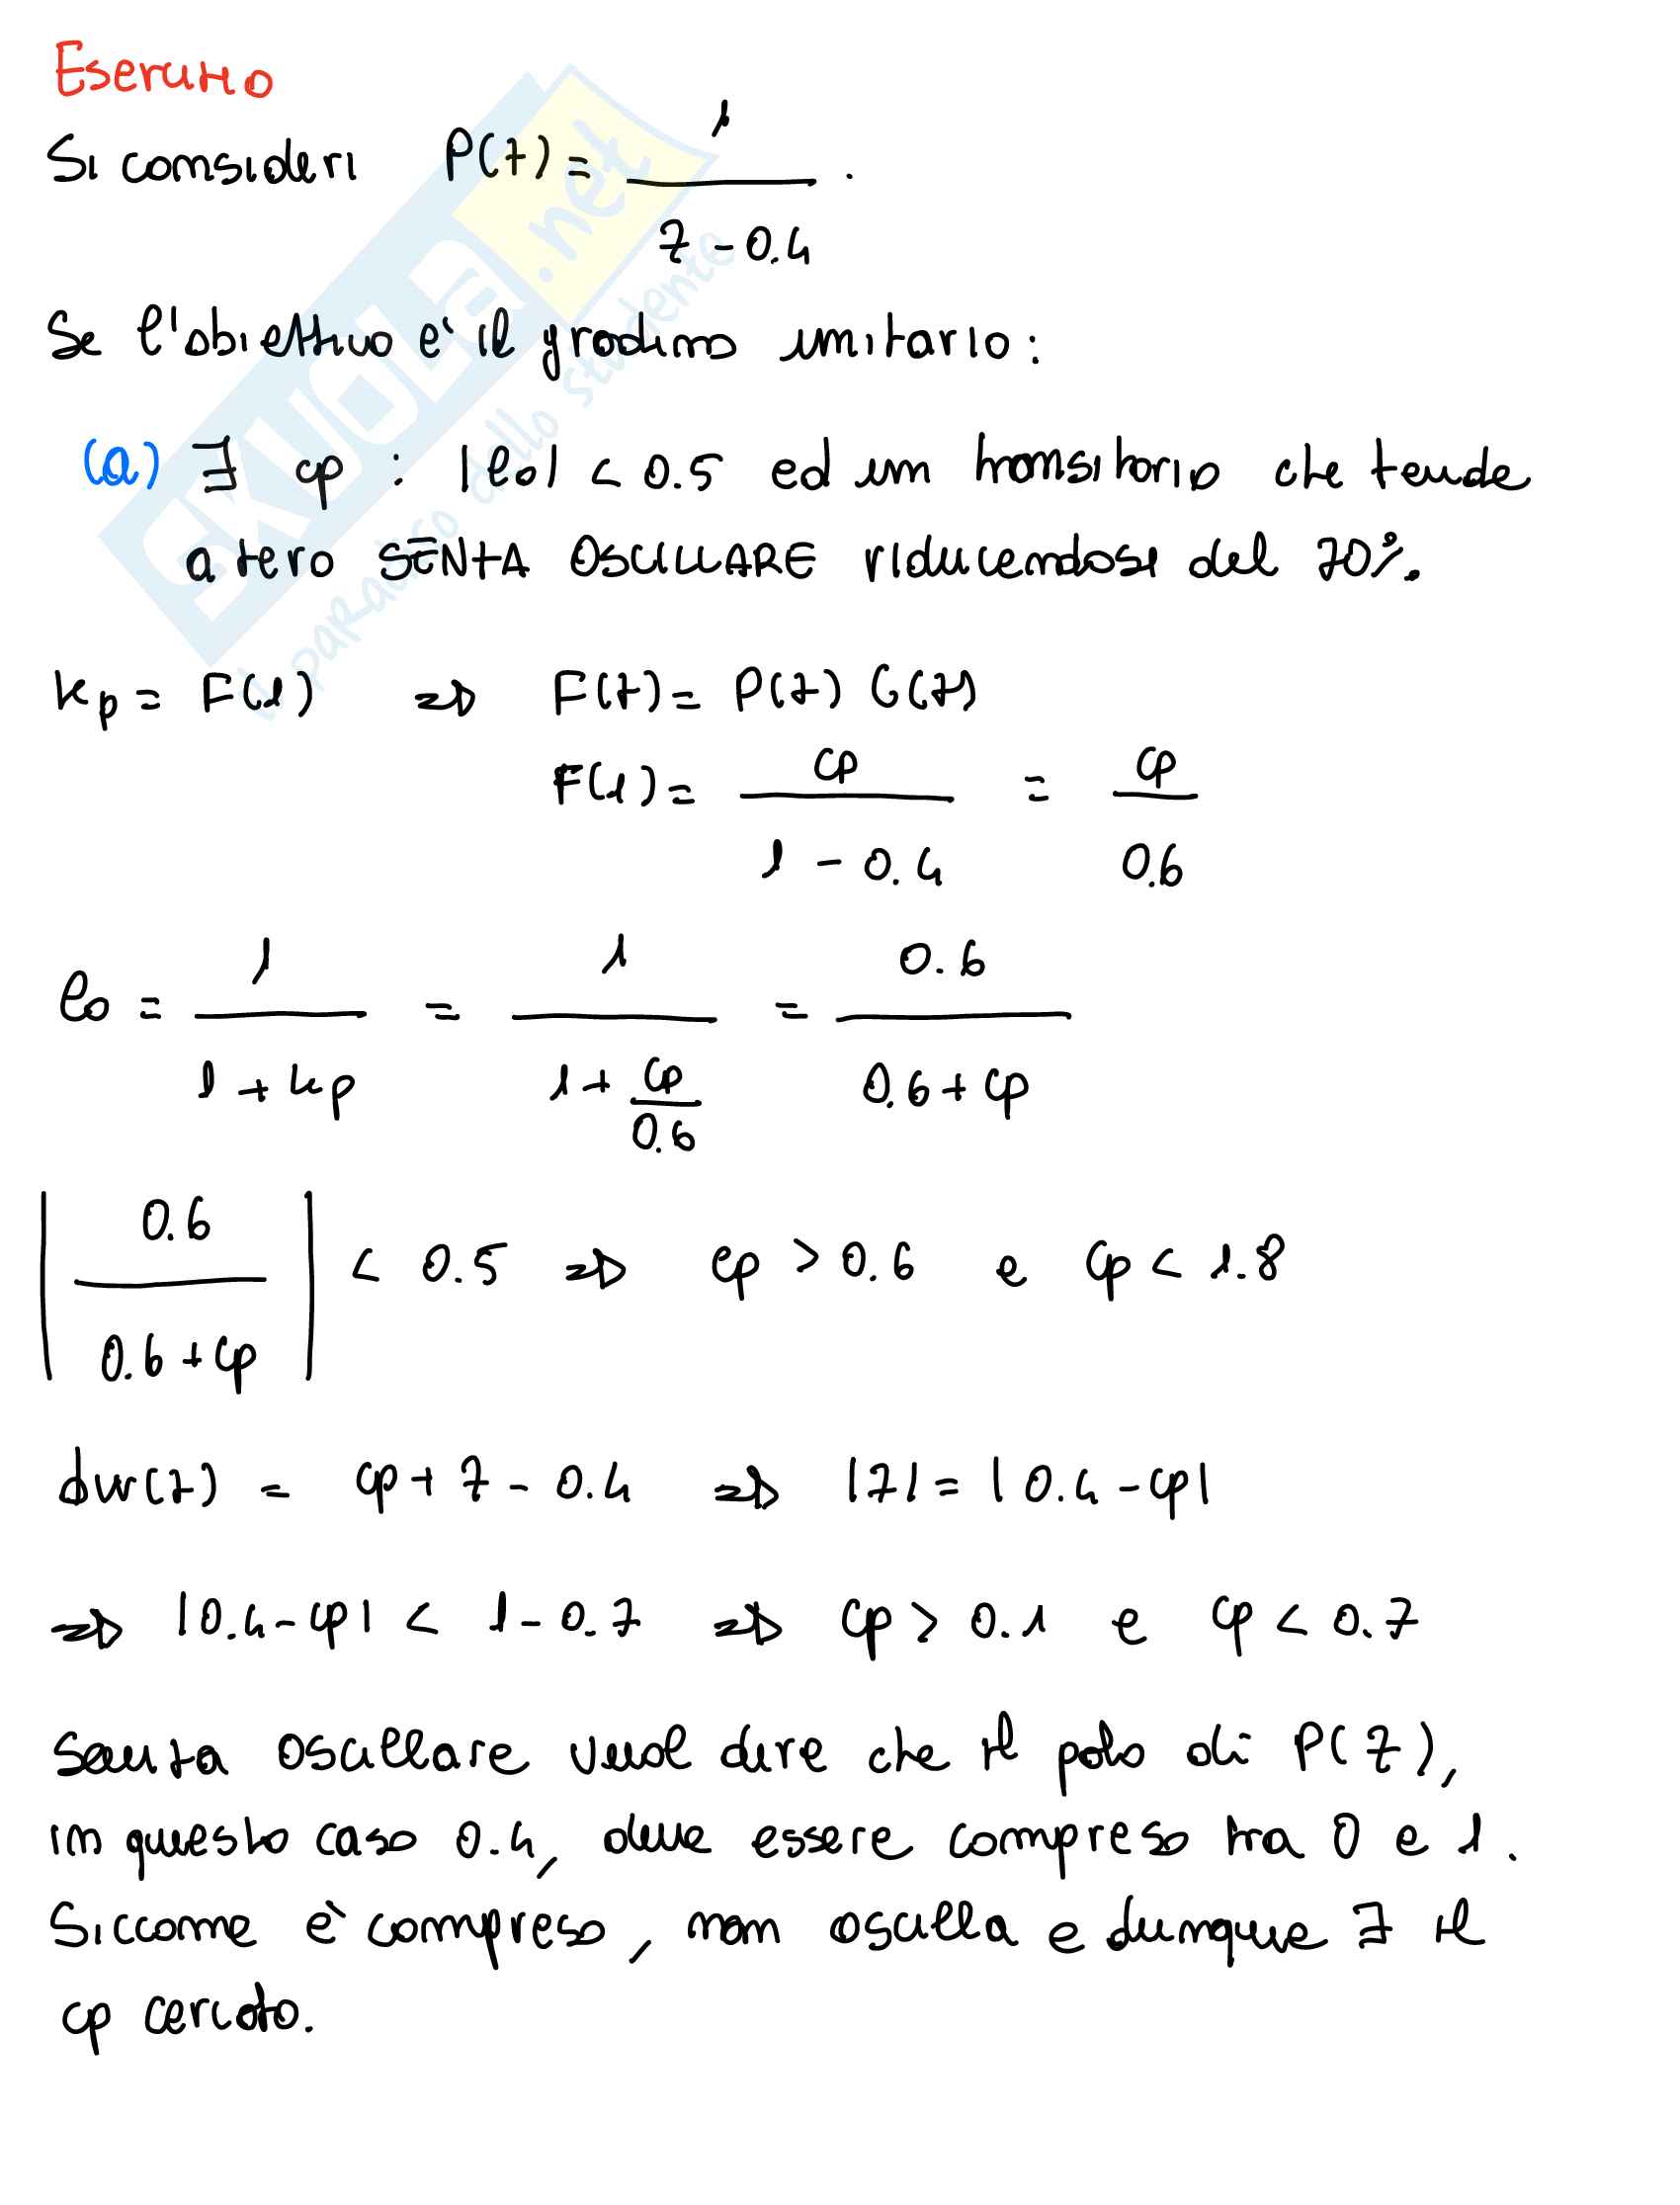 Esercizio
Si consideri P(z) = 1 / (z - 0.4) .
Se l'obiettivo e' il gradino unitario:
(a) ∃ cp : |e0| < 0.5 ed un transitorio che tende
a zero SENZA OSCILLARE riducendosi del 70%.
kp = F(1) ⇒ F(z) = P(z) C(z)
F(1) = cp / (1 - 0.4) = cp / 0.6
e0 = 1 / (1 + kp) = 1 / (1 + cp/0.6) = 0.6 / (0.6 + cp)
| 0.6 / (0.6 + cp) | < 0.5 ⇒ cp > 0.6 e cp < 1.8
dw(z) = cp + z - 0.4 ⇒ |z| = |0.4 - cp|
⇒ |0.4 - cp| < 1 - 0.7 ⇒ cp > 0.1 e cp < 0.7
Senza oscillare vuol dire che il polo di P(z),
in questo caso 0.4, deve essere compreso tra 0 e 1.
Siccome è compreso, non oscilla e dunque ∃ il
cp cercato.
SKUOLA.net
il paradiso dello studente